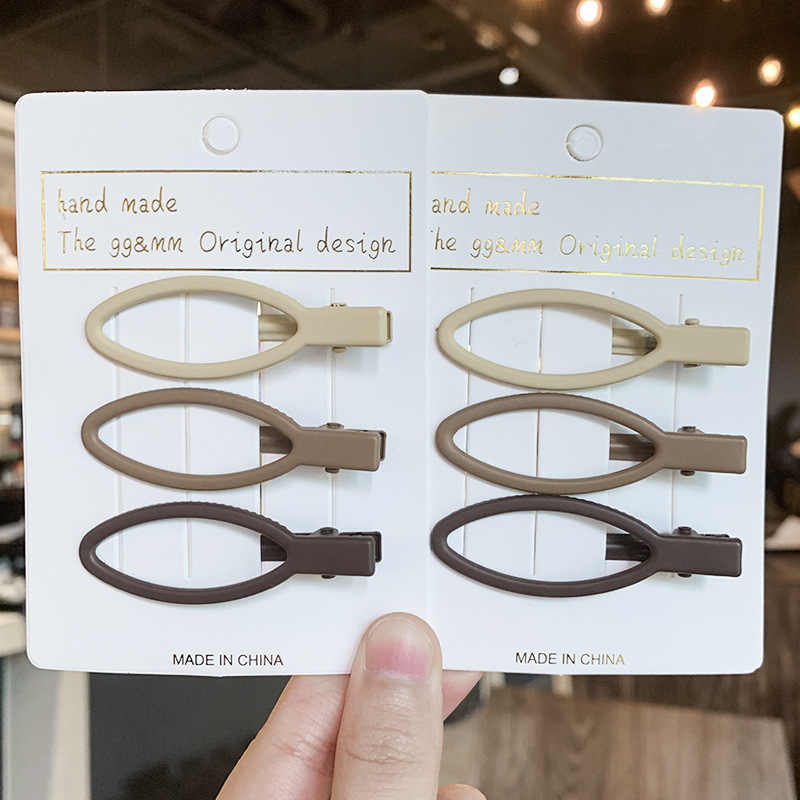 hand made
The gg&mm Original design
MADE IN CHINA
and made
he gg&mm Original design
MADE IN CHINA